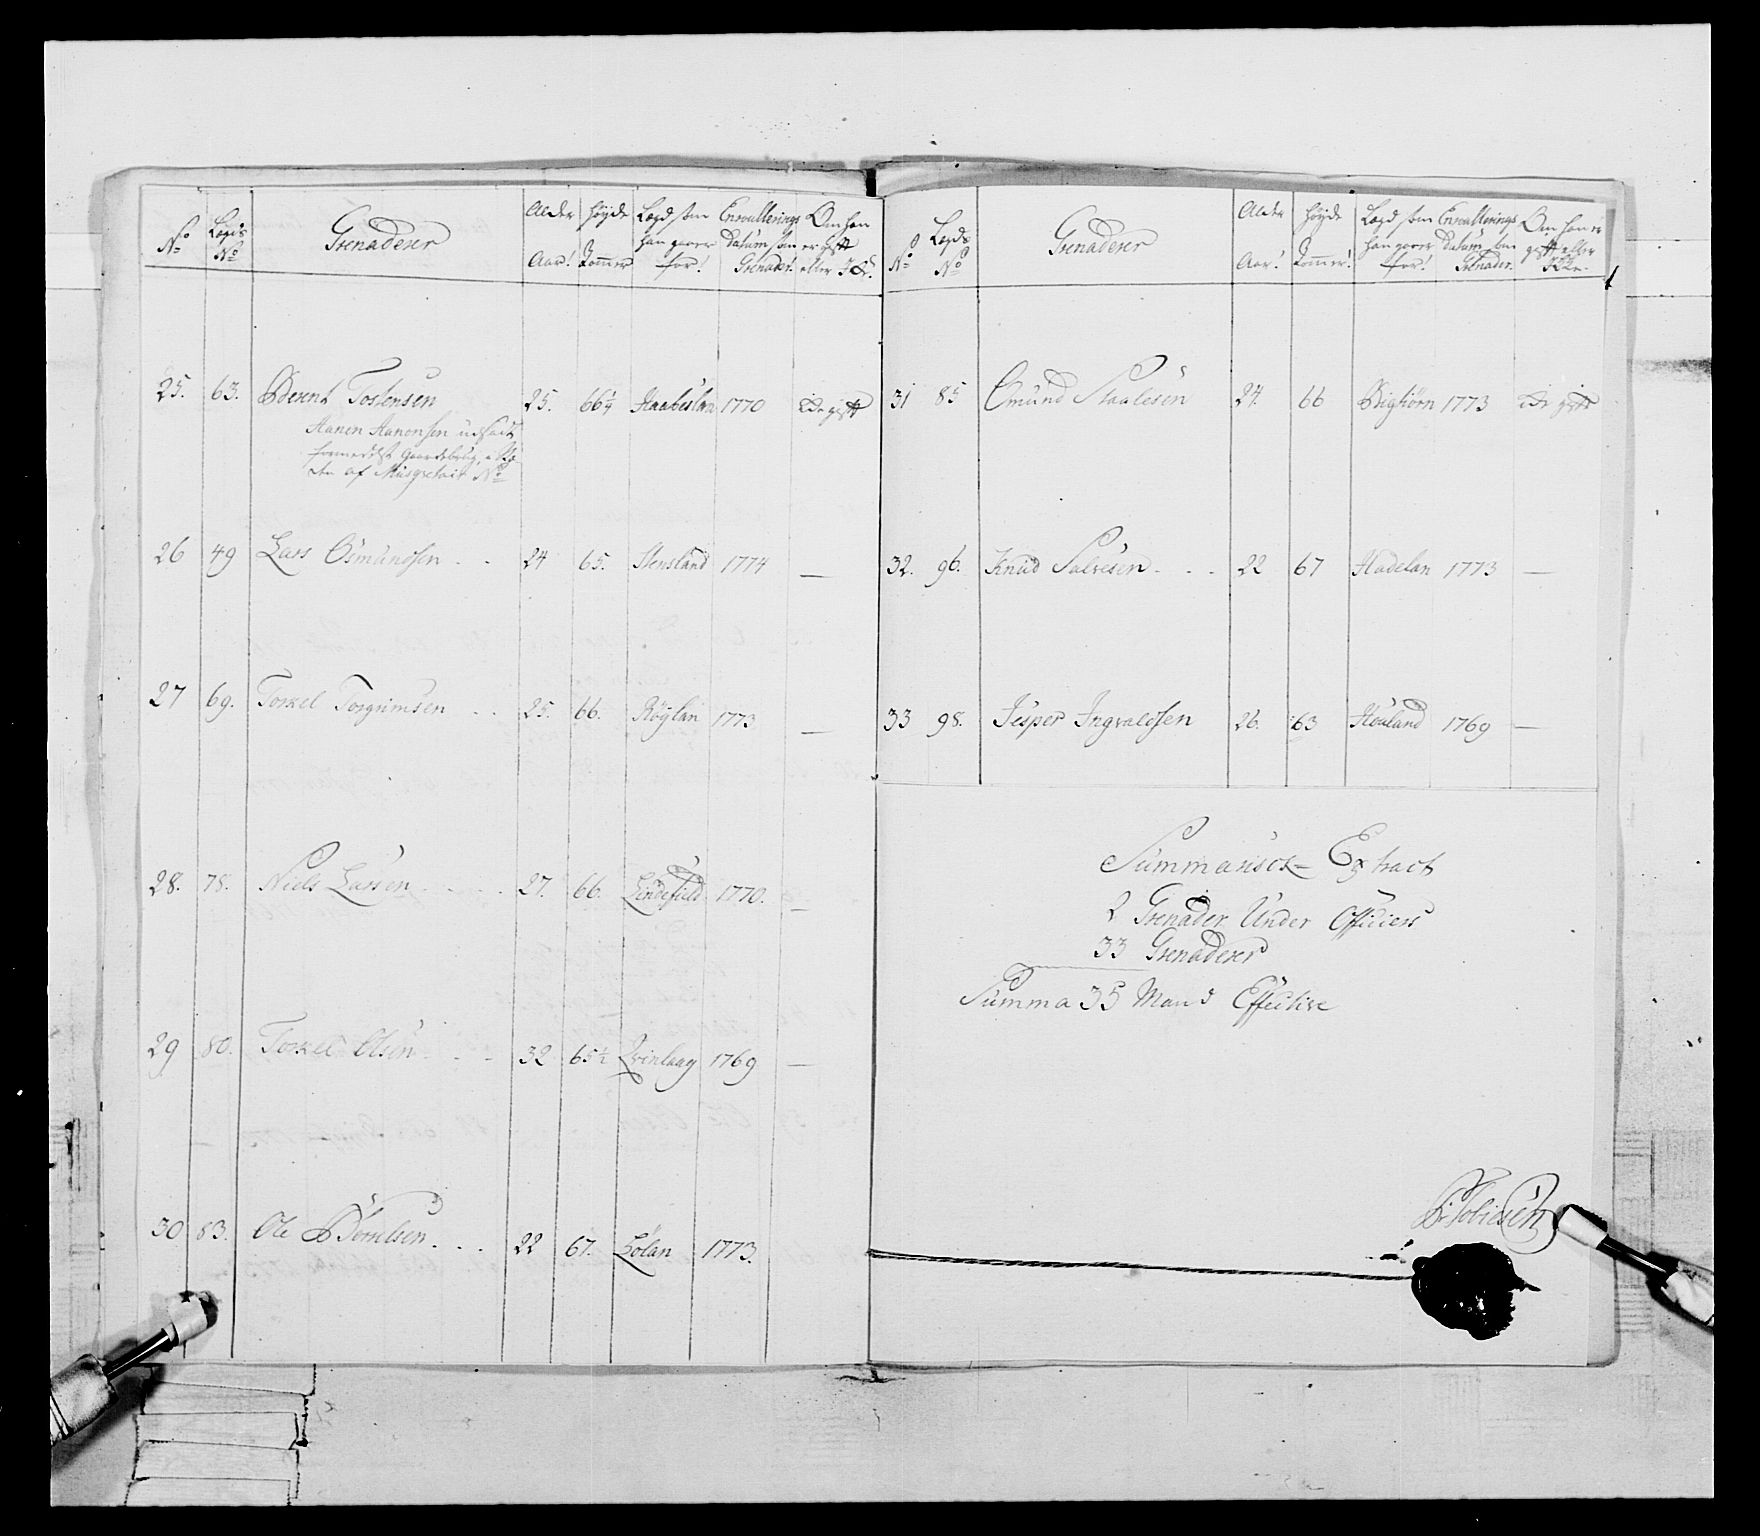 No
Lægds No
Grenaderer
Alder Aar!
Høyde Tommer
Lægd som han gaaer for!
Enroullerings Datum som Grenader.
Om han er gift eller Ikke.
25. 63. Berent Tostensen 25. 66¼ Haabeslan 1770 Ike gift
Hanen Hanensen udsadt
formedelst Gaardebrug,
af Musqvetair No
26 49 Lars Osmundsen . . 24 65. Stensland 1774 —
27 69. Torkel Torgrimsen . . 25. 66. Röÿlan 1773 —
28. 78. Niels Larsen . . . 27. 66. Lindefield 1770. —
29 80. Torkel Olsen . . . 32 65½ Qvinlaug 1769 —
30 83. Ole . . . 22 67. Lölan 1773.
No
Lægds No
Grenaderer
Alder Aar!
Høyde Tommer!
Lægd som han gaaer for!
Enroullerings Datum som Grenader.
Om han er gift eller Ikke.
31 85 Omund Staalesen 24. 66 Bigtiörn 1773 Ike gift
32. 96. Knud Salvesen . . . 22 67 Hadelan 1773 —
33 98. Jesper Ingvaldsen 26. 63 Houland 1769 —
Summarisck Extract
2 Grenader Under Officiers
33 Grenaderer
Summa 35 Mand Effective
Tobiesen